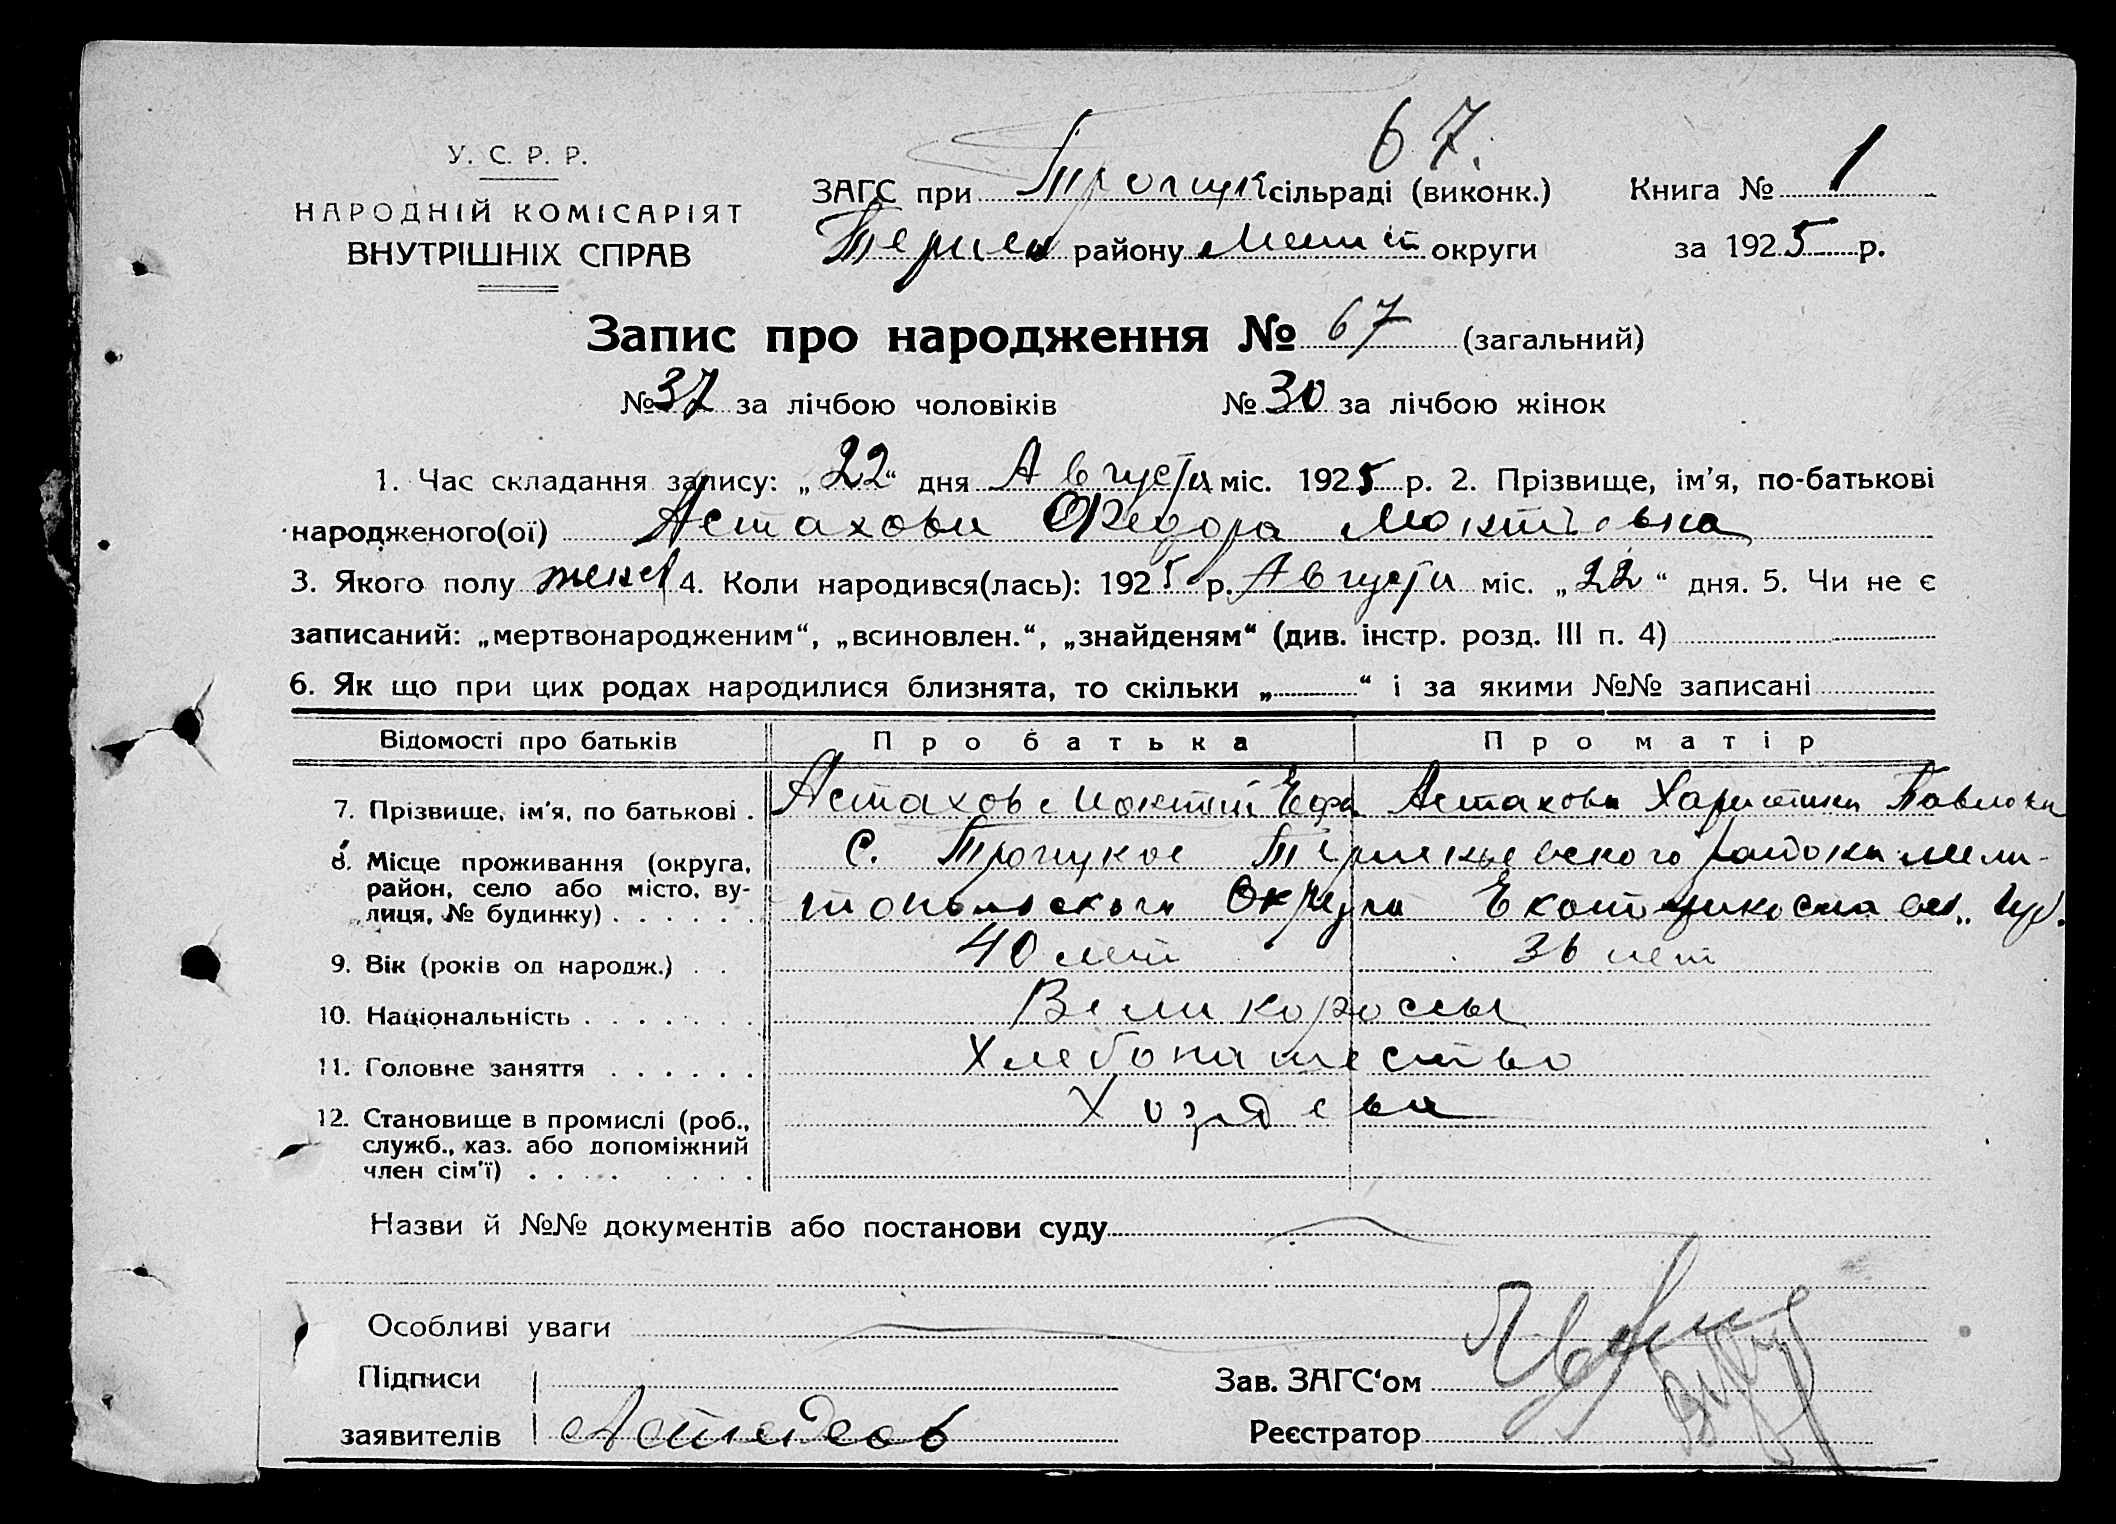 67.
У. С. Р. Р.
НАРОДНІЙ КОМІСАРІЯТ
ВНУТРІШНІХ СПРАВ
ЗАГС при Трогцук сільраді (виконк.) Книга № 1
району Мелит округи за 1925 р.
Запис про народження № 67 (загальний)
№ 37 за лічбою чоловіків № 30 за лічбою жінок
1. Час складання запису: „22“ дня Августа міс. 1925 р. 2. Прізвище, ім'я, по-батькові
народженого(ої) Астахова Федора
3. Якого полу женс 4. Коли народився(лась): 1925 р. Августа міс. „22“ дня. 5. Чи не є
записаний: „мертвонародженим“, „всиновлен.“, „знайденям“ (див. інстр. розд. III п. 4)
6. Як що при цих родах народилися близнята, то скільки „ “ і за якими №№ записані
Відомості про батьків Про батька Про матір
7. Прізвище, ім'я, по батькові . Астахов Астахова Харитина Павловн
8. Місце проживання (округа, С. района Мели-
район, село або місто, ву- топольского Округа Екатеринослав. Губ.
лиця, № будинку) . . . . . .
9. Вік (років од народж.) . . 40 лет 36 лет
10. Національність . . . . . . . Великороссы
11. Головне заняття . . . . . . Хлебопашество
12. Становище в промислі (роб., Хозяева
служб., хаз. або допоміжний
член сім'ї) . . . . . . . .
Назви й №№ документів або постанови суду
Особливі уваги
Підписи Зав. ЗАГС'ом
заявителів Астахов Реєстратор